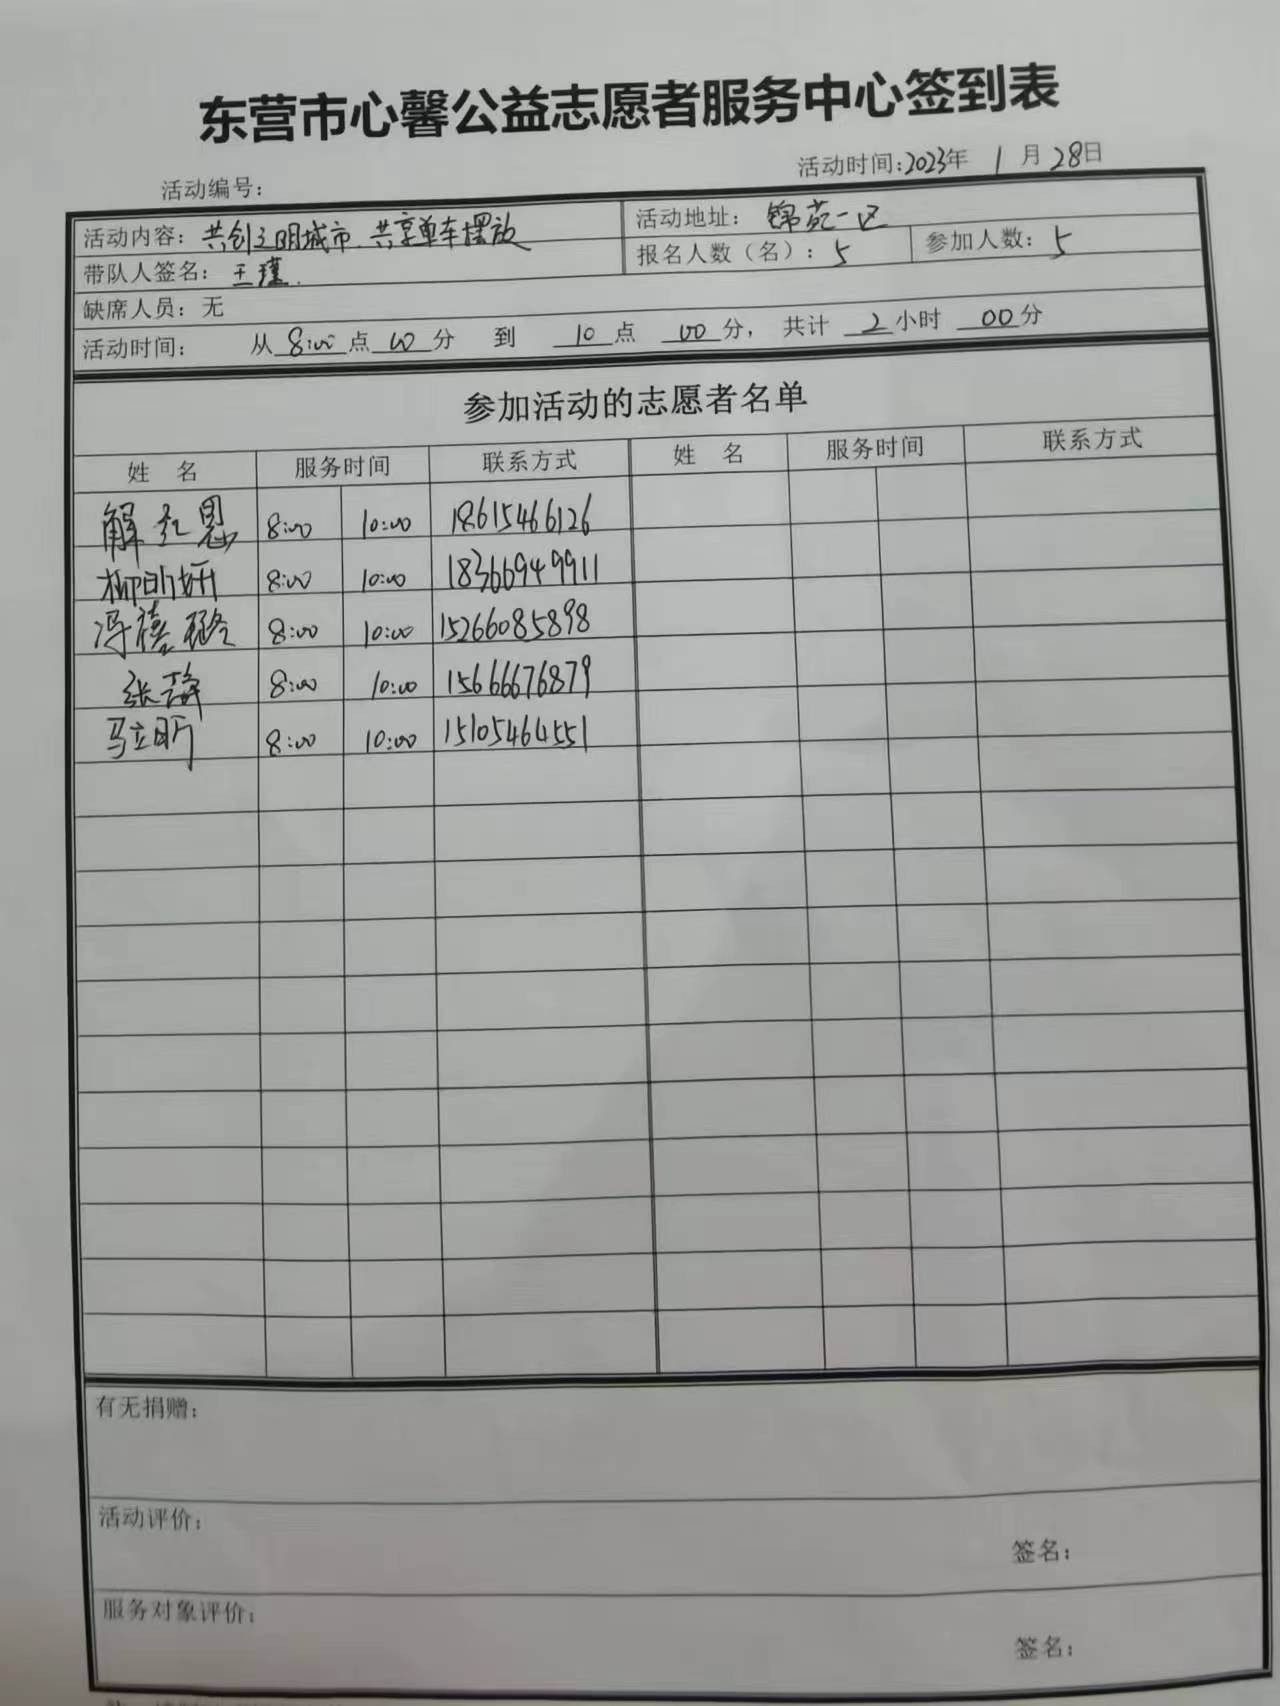 东营市心馨公益志愿者服务中心签到表
活动编号： 活动时间:2023年 1 月 28日
活动内容：共创文明城市、共享单车摆放 活动地址：锦苑一区
带队人签名：王瑾. 报名人数（名）：5 参加人数：5
缺席人员：无
活动时间： 从 8:00 点 00 分 到 10 点 00 分， 共计 2 小时 00 分
参加活动的志愿者名单
姓 名 服务时间 联系方式 姓 名 服务时间 联系方式
解红恩 8:00 10:00 18615466126
柳昕妍 8:00 10:00 18366949911
冯禧璐 8:00 10:00 15266085898
张静 8:00 10:00 15666676879
马立昕 8:00 10:00 15105464551
有无捐赠：
活动评价：
签名：
服务对象评价：
签名：